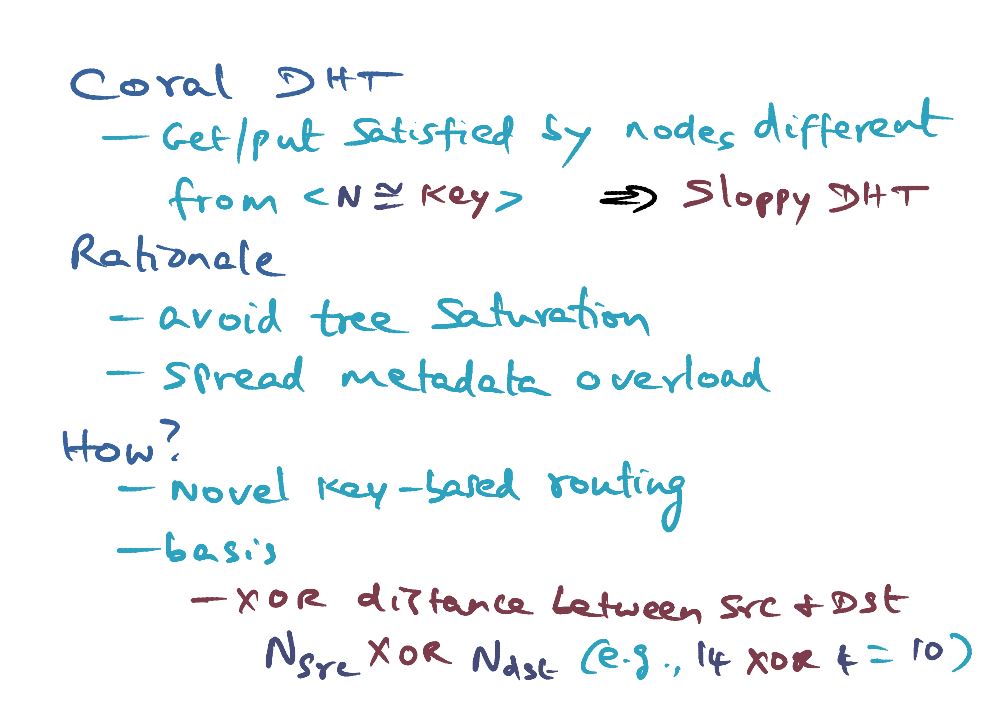 Coral DHT
– Get/put satisfied by nodes different
from <N ≅ Key> ⇒ Sloppy DHT
Rationale
– avoid tree saturation
– spread metadata overload
How?
– Novel key-based routing
– basis
– XOR distance between src & Dst
Nsrc XOR Ndst (e.g., 14 XOR 4 = 10)